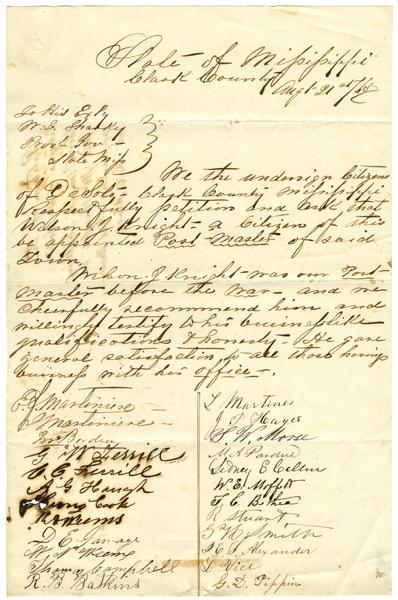 State of Missisippi
Clark County Augt 21st /65
To His Exly
W. L. Sharky
Prov. Gov -
State Miss
We the undersign Citizens
of DeSoto - Clark County Missisippi
Respectfully petition and Ask that
Wilson. J. Knight - a Citizen of this
be appointed Post-Master of said
Town,
Wilson. J Knight - was our Post-
master before the War - and we
cheerfully recommend him and
willingly testify to his businesslike
qualifications & honesty - He gave
general satisfaction to all those having
business with his office -.
Martiniere -
Martiniere -
G W Terrill
Terrill
A G Haugh
Cook
Weems
D E Gamage
W. N. Weems
Thomas Campbell
R. B. Baskins
L Martines
J. P. Hayes
S. W. Morse
M A Pardue
Sidney E Collins
W. E. Moffett
T. C. Bethea
R Stuart
G H Smith
J. E. J. Alexander
J Vice
G. D. Pippin